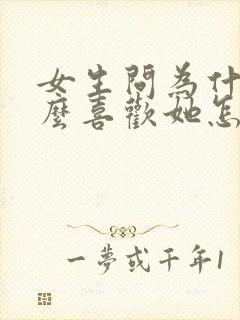 女生問為什
麼喜歡她怎
一夢或千年1